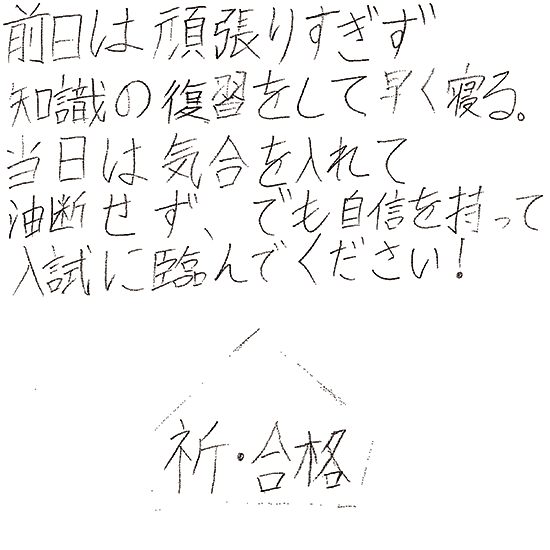 前日は頑張りすぎず
知識の復習をして早く寝る。
当日は気合を入れて
油断せず、でも自信を持って
入試に臨んでください!
祈・合格